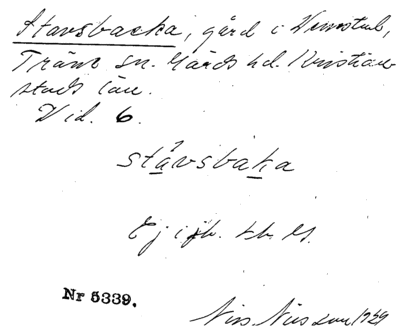 Stavsbacka, gård i Venestad,
Träne sn. Gärds hd. Kristian-
stads län.
Vid. 6.
stávsbaka
Ej i jb. t.b. el.
Nr 5339.
Nils Nilsson 1929